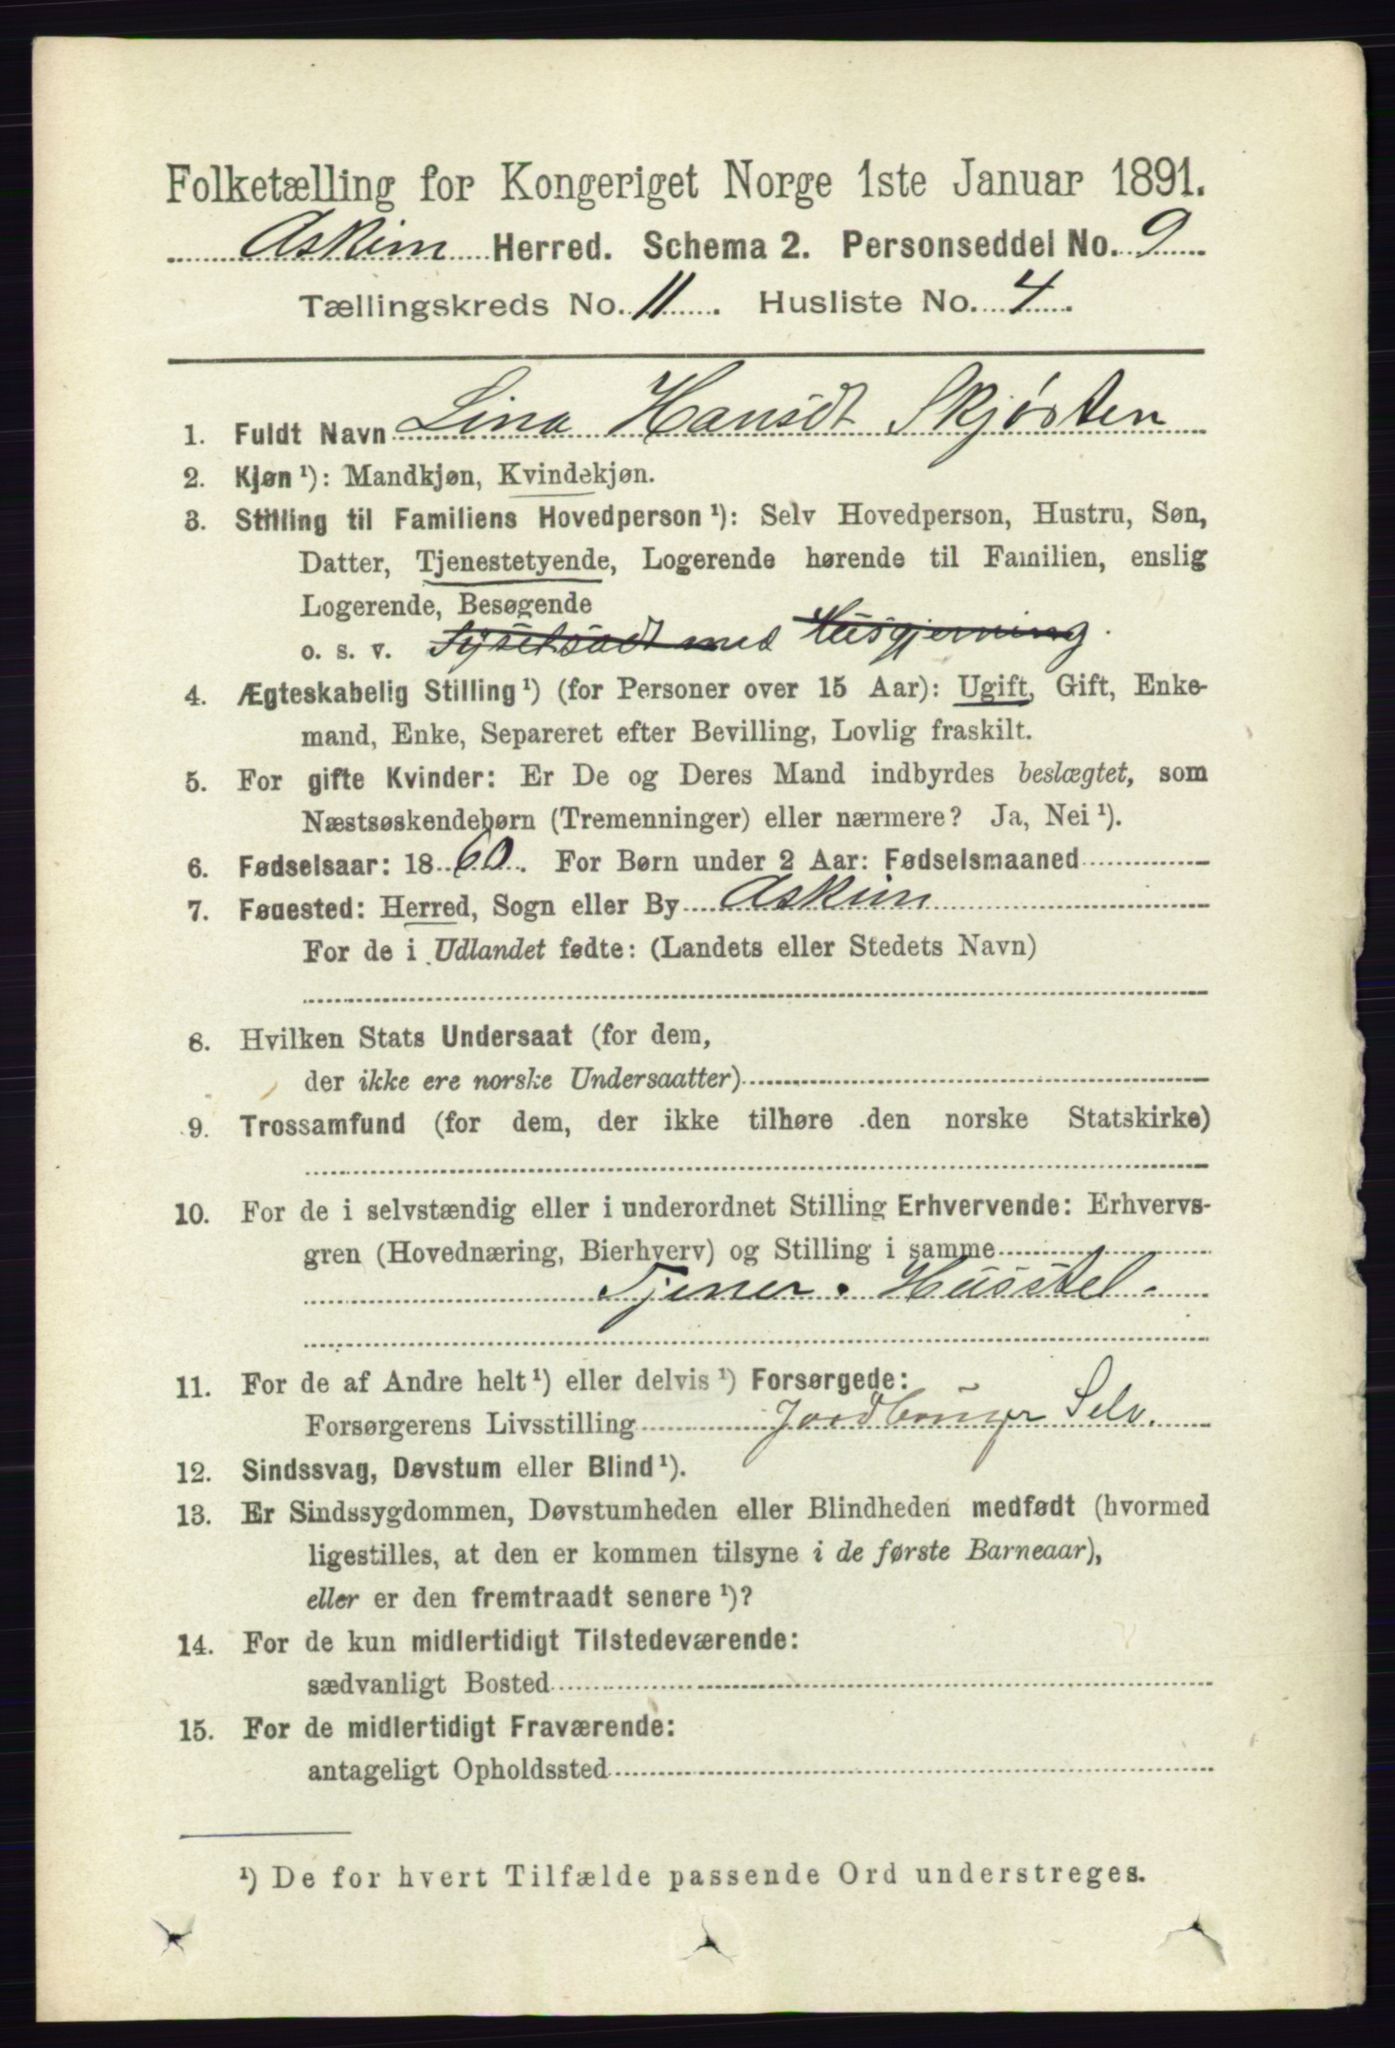 Folketælling for Kongeriget Norge 1ste Januar 1891.
Askim Herred. Schema 2. Personseddel No. 9
Tællingskreds No. 11. Husliste No. 4.
1. Fuldt Navn Lina Hansdt Skjørten
2. Kjøn ¹): Mandkjøn, Kvindekjøn.
3. Stilling til Familiens Hovedperson ¹): Selv Hovedperson, Hustru, Søn,
Datter, Tjenestetyende, Logerende hørende til Familien, enslig
Logerende, Besøgende
o. s. v. Sysselsadt med Husgjerning.
4. Ægteskabelig Stilling ¹) (for Personer over 15 Aar): Ugift, Gift, Enke-
mand, Enke, Separeret efter Bevilling, Lovlig fraskilt.
5. For gifte Kvinder: Er De og Deres Mand indbyrdes beslægtet, som
Næstsøskendebørn (Tremenninger) eller nærmere? Ja, Nei ¹).
6. Fødselsaar: 1860. For Børn under 2 Aar: Fødselsmaaned
7. Fødested: Herred, Sogn eller By Askim
For de i Udlandet fødte: (Landets eller Stedets Navn)
8. Hvilken Stats Undersaat (for dem,
der ikke ere norske Undersaatter)
9. Trossamfund (for dem, der ikke tilhøre den norske Statskirke)
10. For de i selvstændig eller i underordnet Stilling Erhvervende: Erhvervs-
gren (Hovednæring, Bierhverv) og Stilling i samme
Tjener. Husstel.
11. For de af Andre helt ¹) eller delvis ¹) Forsørgede:
Forsørgerens Livsstilling Jordbruger Selv.
12. Sindssvag, Døvstum eller Blind ¹).
13. Er Sindssygdommen, Døvstumheden eller Blindheden medfødt (hvormed
ligestilles, at den er kommen tilsyne i de første Barneaar),
eller er den fremtraadt senere ¹)?
14. For de kun midlertidigt Tilstedeværende:
sædvanligt Bosted
15. For de midlertidigt Fraværende:
antageligt Opholdssted
¹) De for hvert Tilfælde passende Ord understreges.